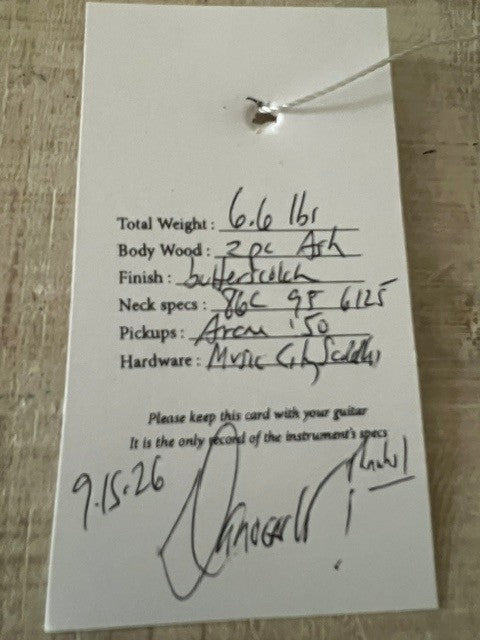 Total Weight : 6.6 lbs
Body Wood : 2 pc Ash
Finish : butterscotch
Neck specs : 86C 9.5 6125
Pickups : Arcane '50
Hardware : Music City Saddles
Please keep this card with your guitar
It is the only record of the instrument's specs
Thanks!
9.15.26